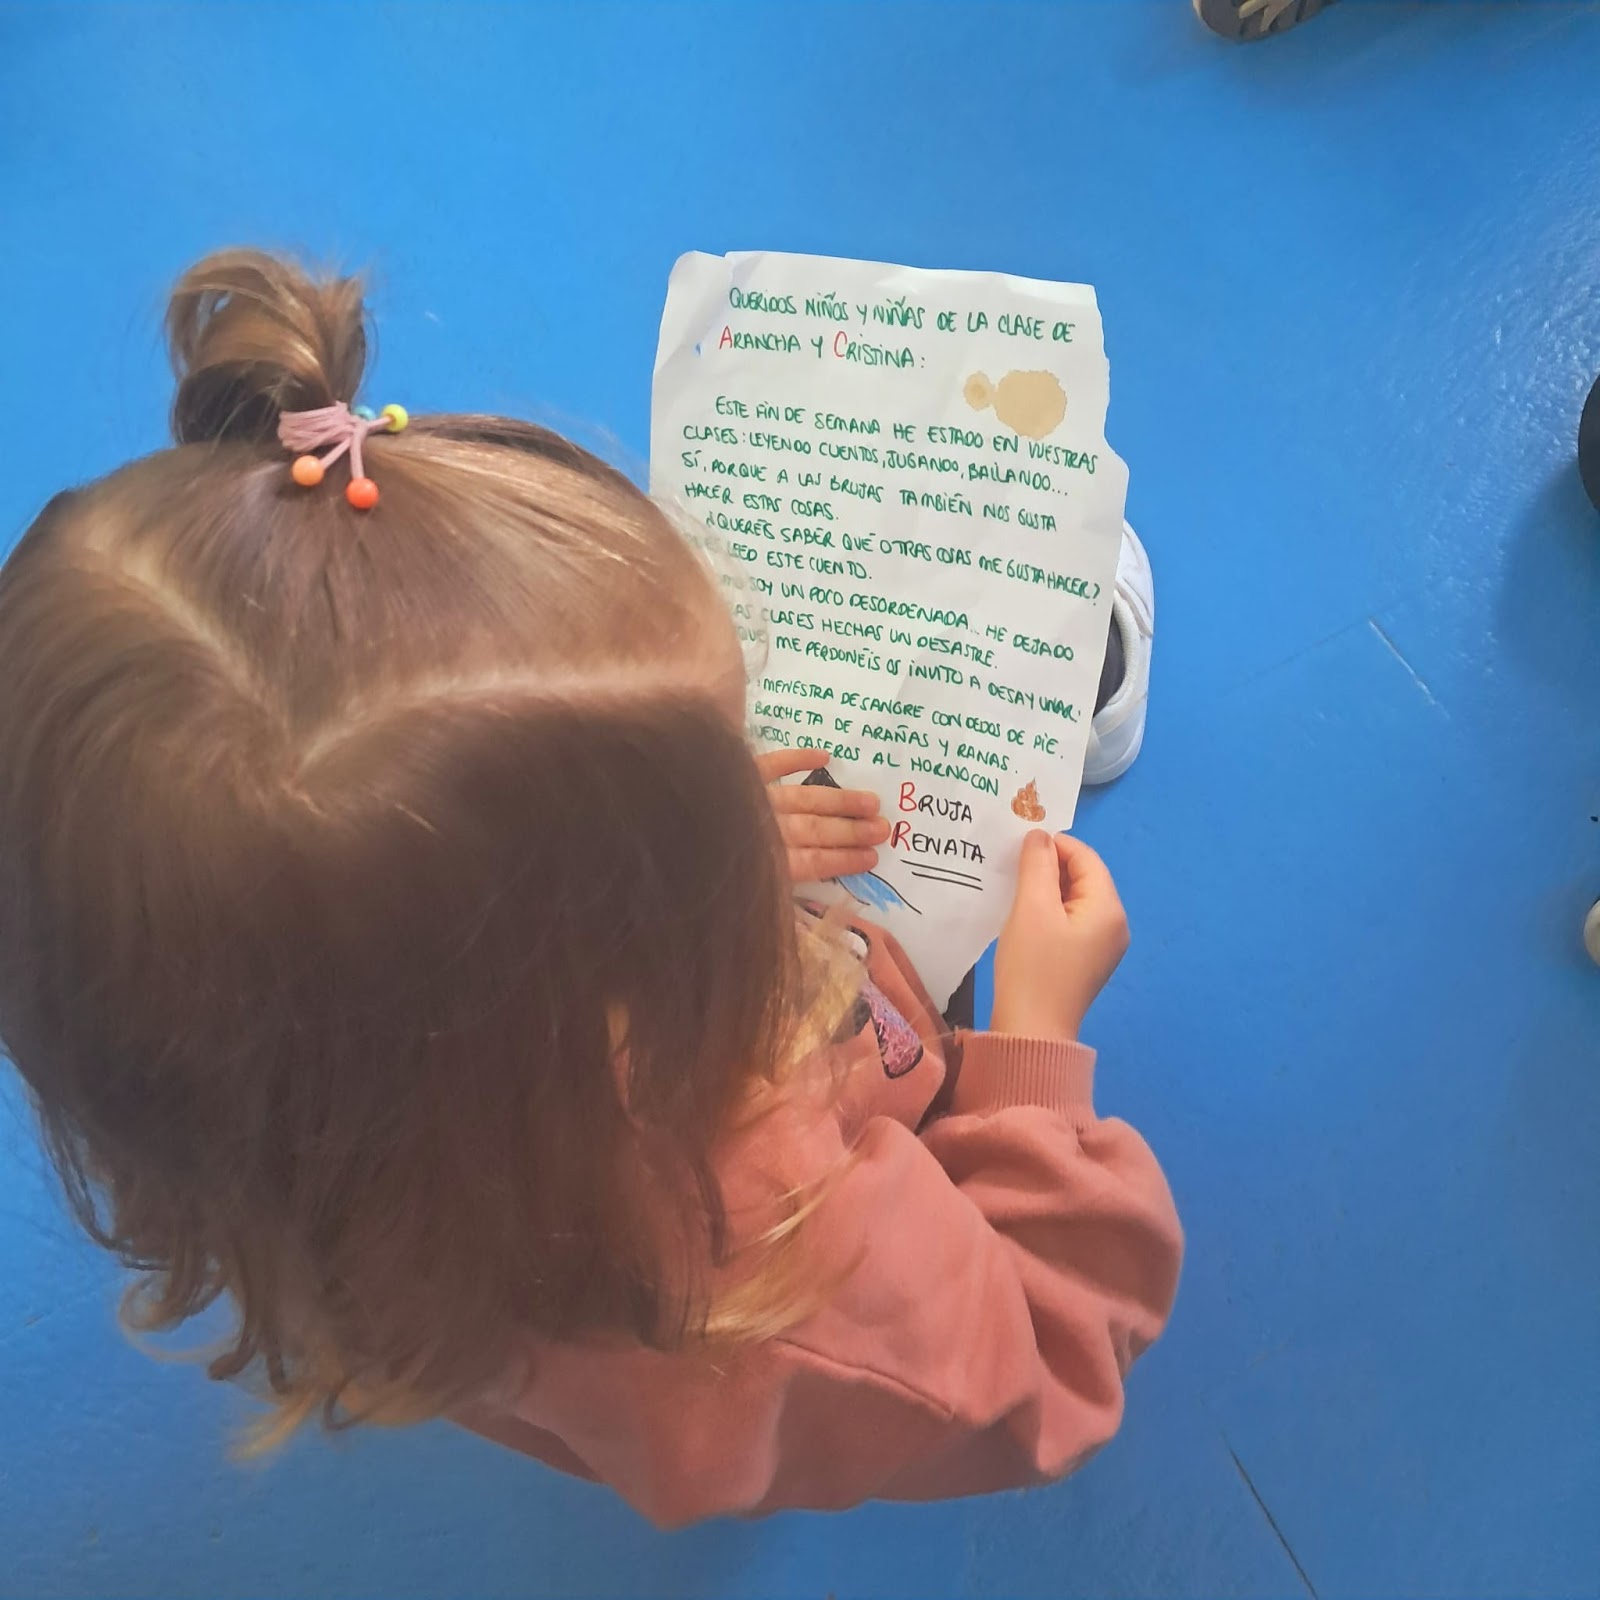 QUERIDOS NIÑOS Y NIÑAS DE LA CLASE DE
ARANCHA Y CRISTINA:
ESTE FIN DE SEMANA HE ESTADO EN VUESTRAS
CLASES: LEYENDO CUENTOS, JUGANDO, BAILANDO...
SÍ, PORQUE A LAS BRUJAS TAMBIÉN NOS GUSTA
HACER ESTAS COSAS.
¿QUERÉIS SABER QUÉ OTRAS COSAS ME GUSTA HACER?
LEED ESTE CUENTO.
SOY UN POCO DESORDENADA... HE DEJADO
CLASES HECHAS UN DESASTRE.
QUE ME PERDONÉIS OS INVITO A DESAYUNAR:
MENESTRA DE SANGRE CON DEDOS DE PIE.
BROCHETA DE ARAÑAS Y RANAS.
CASEROS AL HORNO CON
BRUJA
RENATA